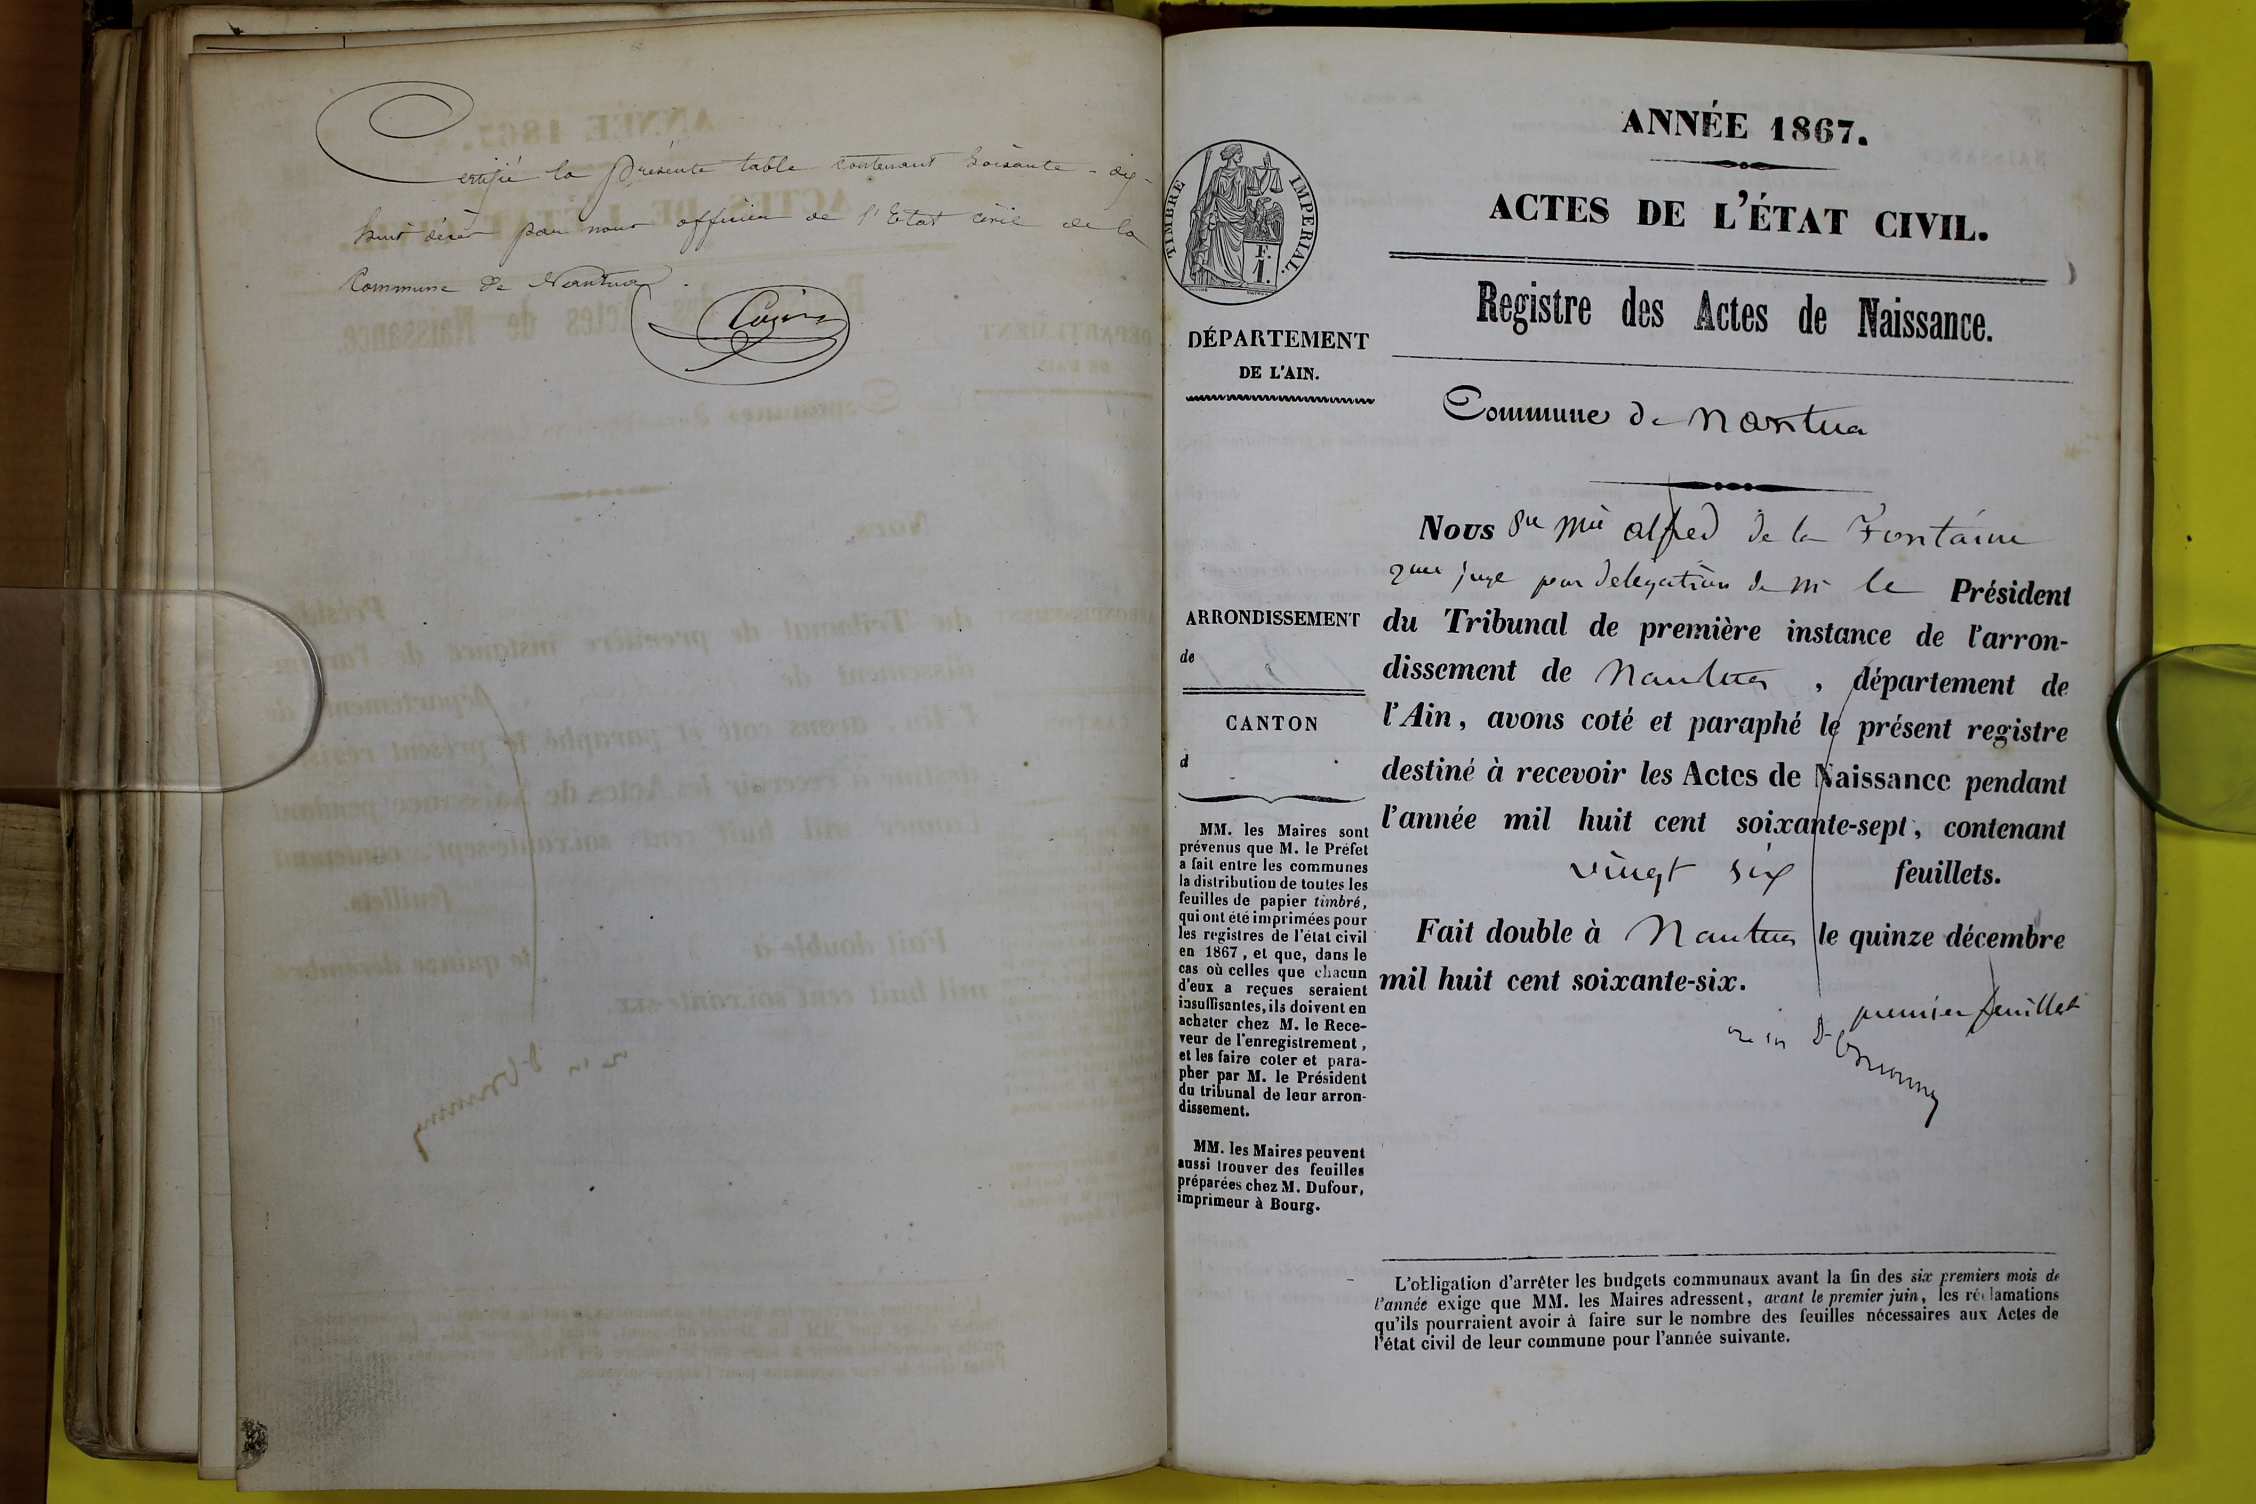 Certifié la présente table contenant soixante-dix-
huit décès par nous officier de l'Etat civil de la
Commune de Nantua.
ANNÉE 1867.
ACTES DE L'ÉTAT CIVIL.
Registre des Actes de Naissance.
TIMBRE IMPERIAL.
F.
1.
DÉPARTEMENT
DE L'AIN.
Commune de Nantua
Nous Alfred de la Fontaine
juge par delegation de Mr le Président
du Tribunal de première instance de l'arron-
dissement de Nantua, département de
l'Ain, avons coté et paraphé le présent registre
destiné à recevoir les Actes de Naissance pendant
l'année mil huit cent soixante-sept, contenant
vingt six feuillets.
Fait double à Nantua le quinze décembre
mil huit cent soixante-six.
premier feuillet
ARRONDISSEMENT
de
CANTON
d
MM. les Maires sont
prévenus que M. le Préfet
a fait entre les communes
la distribution de toutes les
feuilles de papier timbré,
qui ont été imprimées pour
les registres de l'état civil
en 1867, et que, dans le
cas où celles que chacun
d'eux a reçues seraient
insuffisantes, ils doivent en
acheter chez M. le Rece-
veur de l'enregistrement,
et les faire coter et para-
pher par M. le Président
du tribunal de leur arron-
dissement.
MM. les Maires peuvent
aussi trouver des feuilles
préparées chez M. Dufour,
imprimeur à Bourg.
L'obligation d'arrêter les budgets communaux avant la fin des six premiers mois de
l'année exige que MM. les Maires adressent, avant le premier juin, les réclamations
qu'ils pourraient avoir à faire sur le nombre des feuilles nécessaires aux Actes de
l'état civil de leur commune pour l'année suivante.